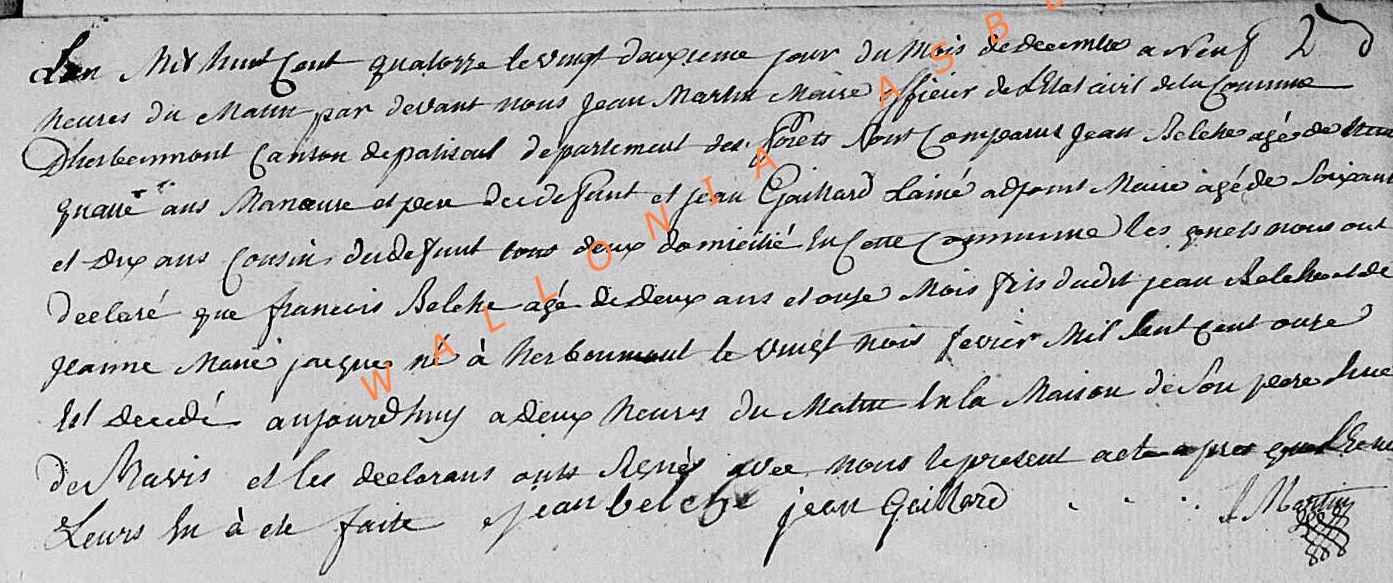 L'an Mil huit Cent quatorze le vingt deuxieme jour du Mois de decembre a Neuf 2
heures du Matin par devant nous Jean Martin Maire officier de L'Etat civil de la Commune
D'herbeumont Canton de paliseul departement des forets sont Comparus Jean Belche agé de
quatre ans Manœuvre et pere du defunt et jean Gaillard L'ainé adjoint Maire agé de Soixante
et dix ans Cousin du defunt tous deux domicilié En Cette Commune les quels nous ont
declaré que francois Belche agé de deux ans et onse Mois fils dudit jean Belche et de
Jeanne Marie jacque né à herbeumont le vingt trois fevrier Mil huit cent onze
Est decedé aujourdhuy a deux heures du Matin En la Maison de Son pere
de Maris et les declarans ont Signés avec nous le present acte apres que
Leurs En à eté faite jean belche jean Gaillard J Martin
WALLONIA ASBL